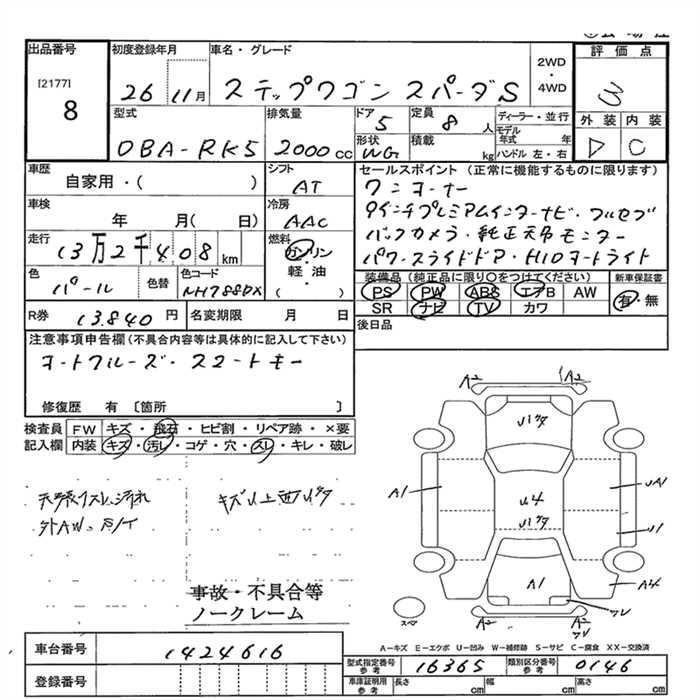 出品番号
[2177]
8
初度登録年月
26 11月
車名・グレード
ステップワゴン スパーダS
2WD
・
4WD
評 価 点
3
外 装 内 装
D C
型式
DBA-RK5
排気量
2000cc
ドア
5
形状
WG
定員
8 人
積載
kg
ディーラー・並 行
モデル
年式 年
ハンドル 左・右
車歴
自家用・( )
シフト
AT
車検
年 月( 日)
冷房
AAC
走行
13万2千408km
燃料
ガソリン
軽・油
( )
色
パール
色替
色コード
NH788PX
セールスポイント (正常に機能するものに限ります)
ワンオーナー
9インチプレミアムインターナビ・フルセグ
バックカメラ・純正天吊モニター
パワースライドドア・HIDオートライト
装備品(純正品に限り○をつけてください)
PS PW ABS エアB AW
SR ナビ TV カワ
新車保証書
有・無
R券
13,840 円
名変期限 月 日
後日品
注意事項申告欄(不具合内容等は具体的に記入して下さい)
オートクルーズ・スマートキー
修復歴 有 〔箇所 〕
検査員
記入欄
FW キズ・飛石・ヒビ割・リペア跡・×要
内装 キズ・汚レ・コゲ・穴・スレ・キレ・破レ
キズ
事故・不具合等
ノークレーム
A2 A2
A1
U4
A1
UA1
U1
A4
A2 A2
スペ
A-キズ E-エクボ U-凹み W-補修跡 S-サビ C-腐食 XX-交換済
車台番号
1424616
登録番号
型式指定番号
参考
16365
類別区分番号
参考
0146
車庫証明用
参考
長さ cm 幅 cm 高さ cm